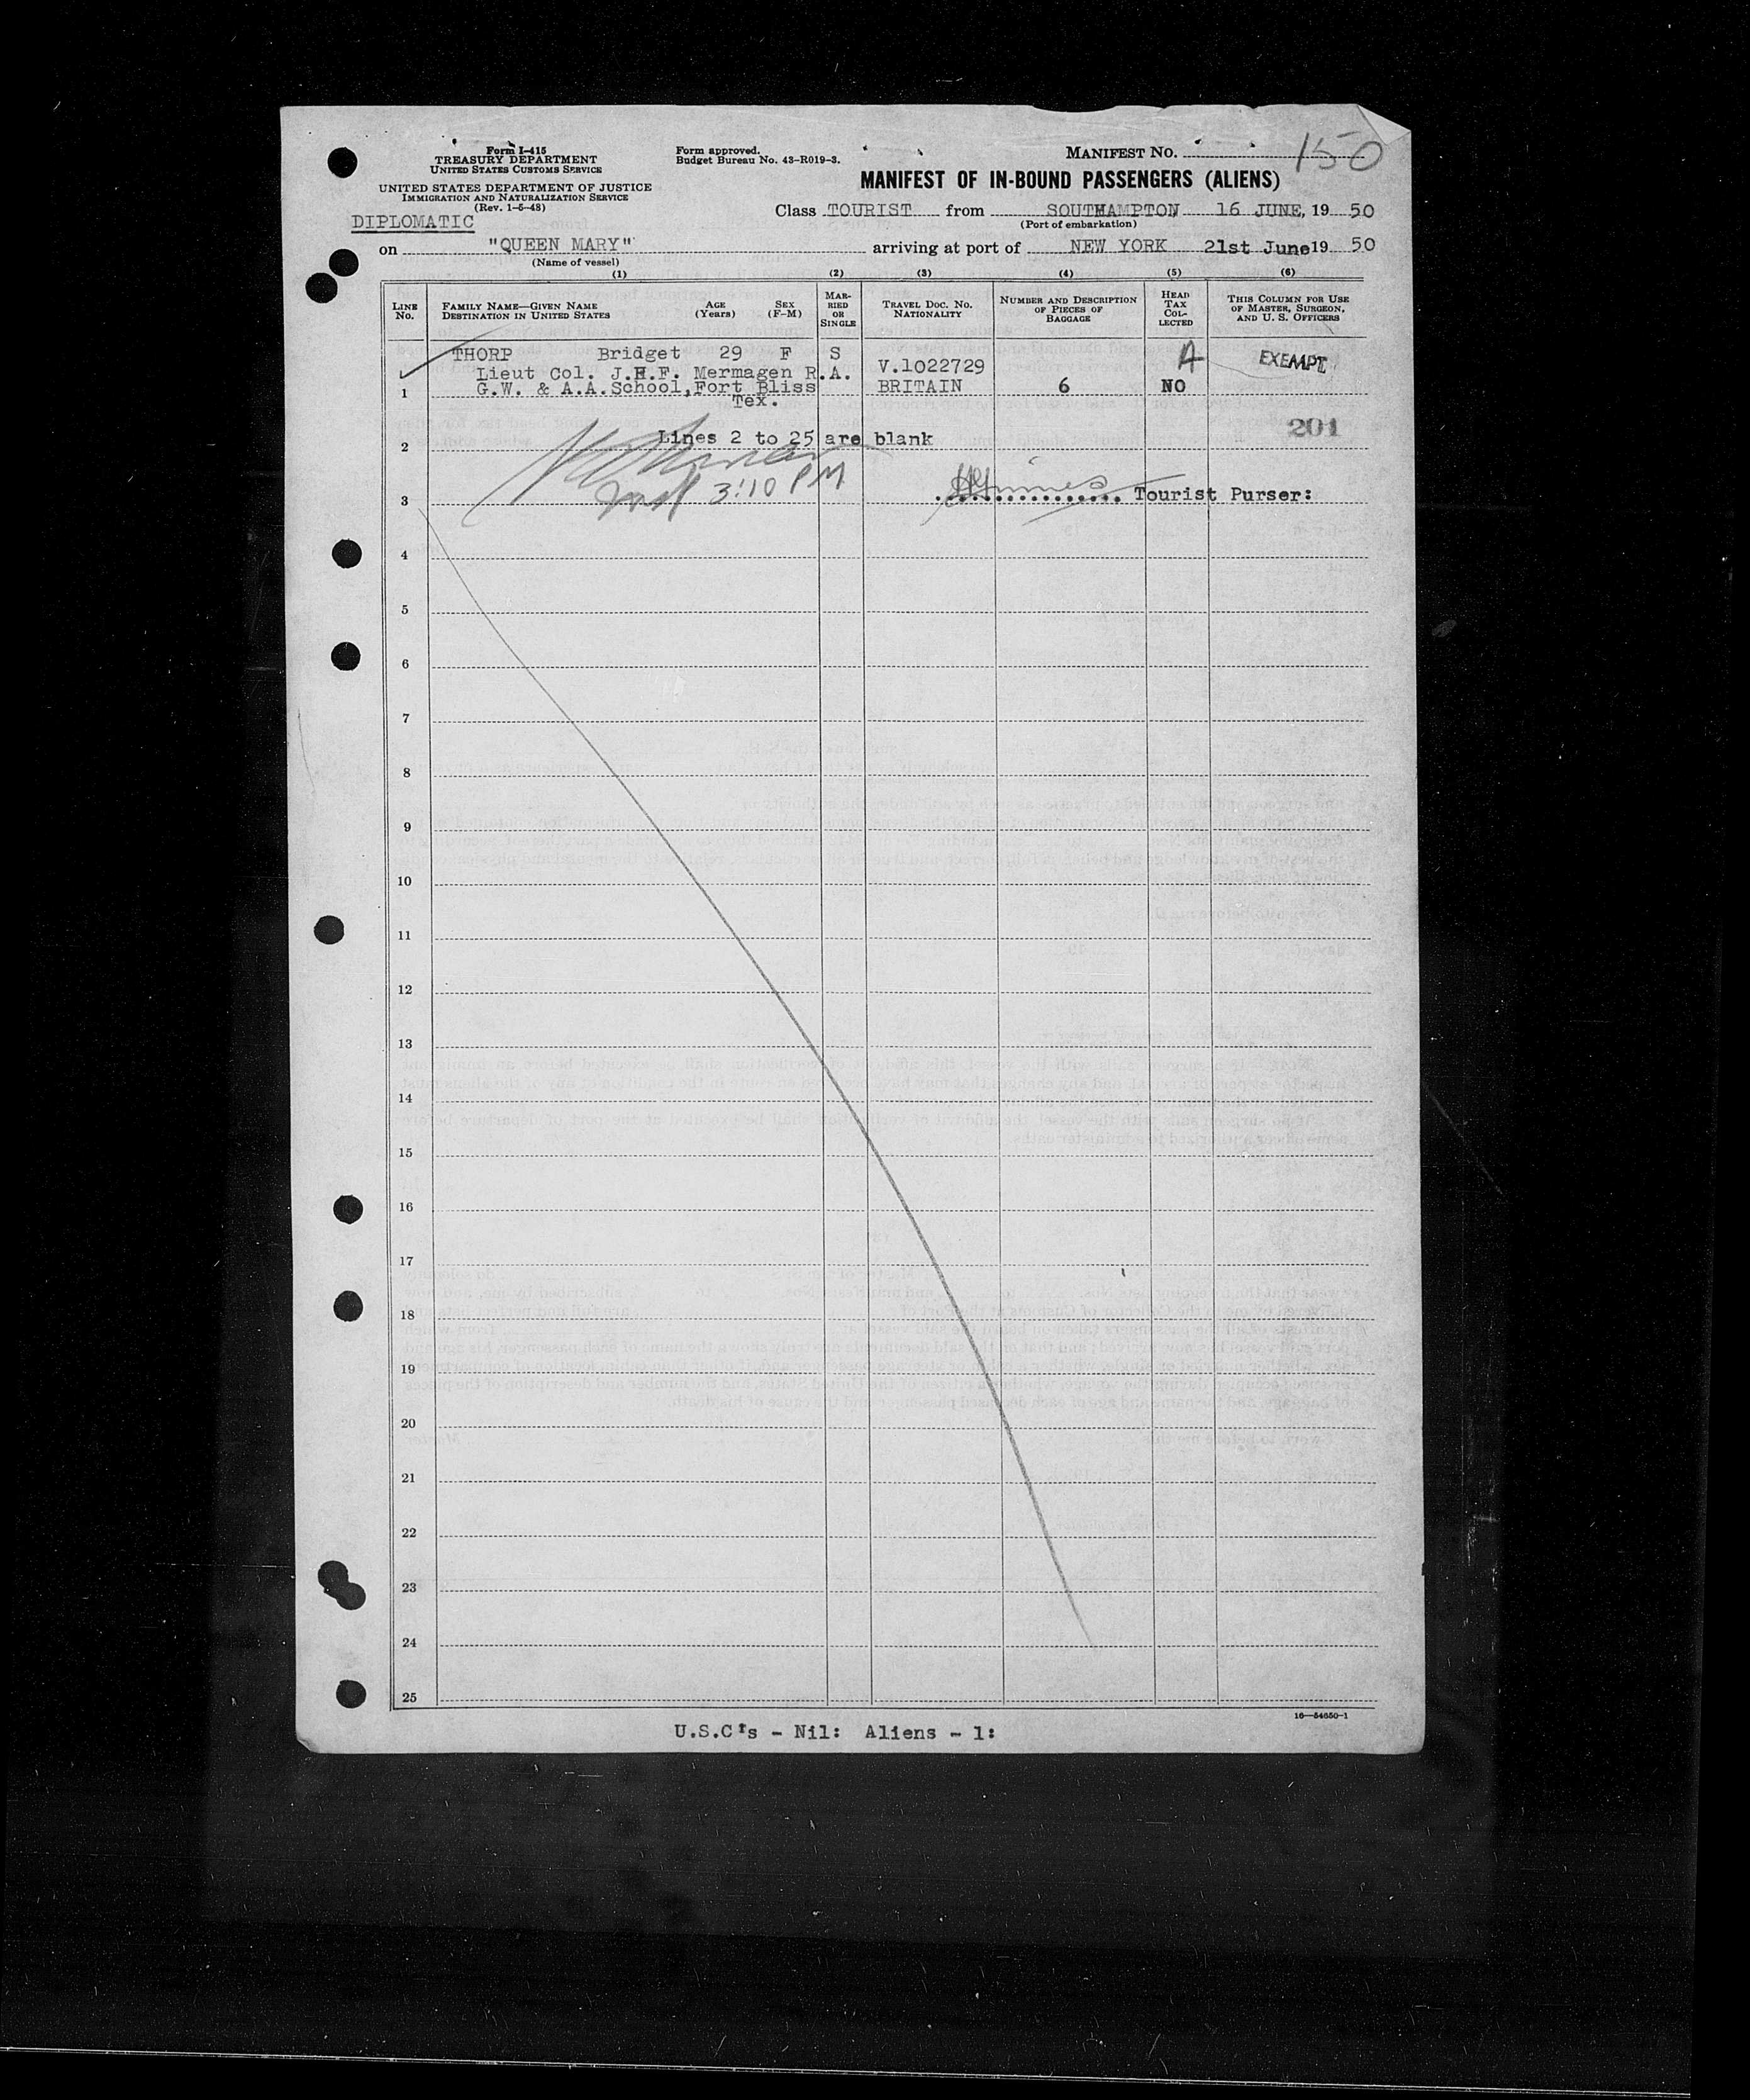 Form I-415
TREASURY DEPARTMENT
UNITED STATES CUSTOMS SERVICE
UNITED STATES DEPARTMENT OF JUSTICE
IMMIGRATION AND NATURALIZATION SERVICE
(Rev. 1-5-48)
DIPLOMATIC
Form approved.
Budget Bureau No. 43-R019-3.
MANIFEST NO. 150
MANIFEST OF IN-BOUND PASSENGERS (ALIENS)
Class TOURIST from SOUTHAMPTON 16 JUNE, 19 50
(Port of embarkation)
on "QUEEN MARY" arriving at port of NEW YORK 21st June 19 50
(Name of vessel)
(1) (2) (3) (4) (5) (6)
LINE No. FAMILY NAME—GIVEN NAME DESTINATION IN UNITED STATES AGE (Years) SEX (F-M) MARRIED OR SINGLE TRAVEL DOC. NO. NATIONALITY NUMBER AND DESCRIPTION OF PIECES OF BAGGAGE HEAD TAX COLLECTED THIS COLUMN FOR USE OF MASTER, SURGEON, AND U. S. OFFICERS
THORP Bridget 29 F S V.1022729 A EXEMPT
Lieut Col. J.H.F. Mermagen R.A.
1 G.W. & A.A. School, Fort Bliss BRITAIN 6 NO
Tex.
201
2 Lines 2 to 25 are blank
3 3:10 PM Tourist Purser:
4
5
6
7
8
9
10
11
12
13
14
15
16
17
18
19
20
21
22
23
24
25
16—54650-1
U.S.C's - Nil: Aliens - 1: